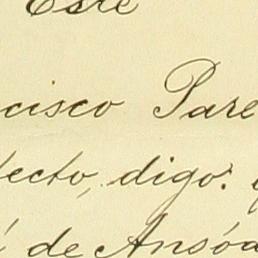 Este
cisco Pare
ecto, digo:
de Ansóa